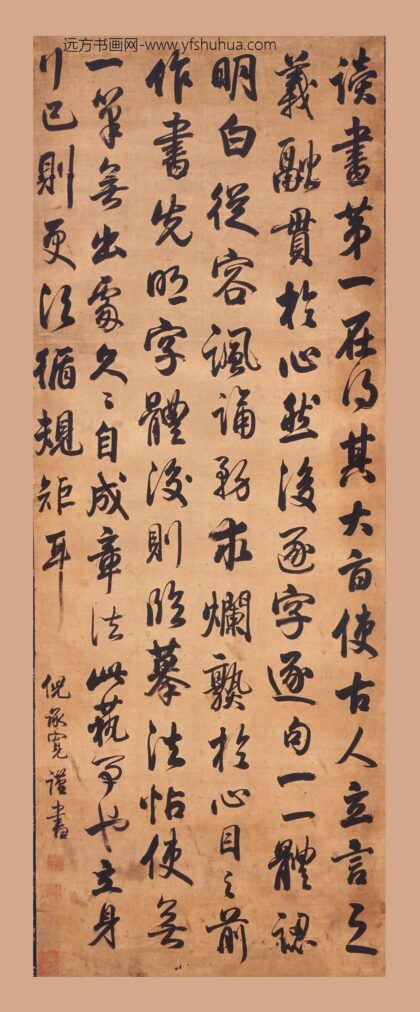 远方书画网-www.yfshuhua.com
讀書第一在得其大旨使古人立言之
義融貫於心然後逐字逐句一一體認
明白從容諷誦務求爛熟於心目之前
作書先明字體後則臨摹法帖使無
一筆無出處久〻自成章法此藝事也立身
行己則更須循規矩耳
倪承寬謹書